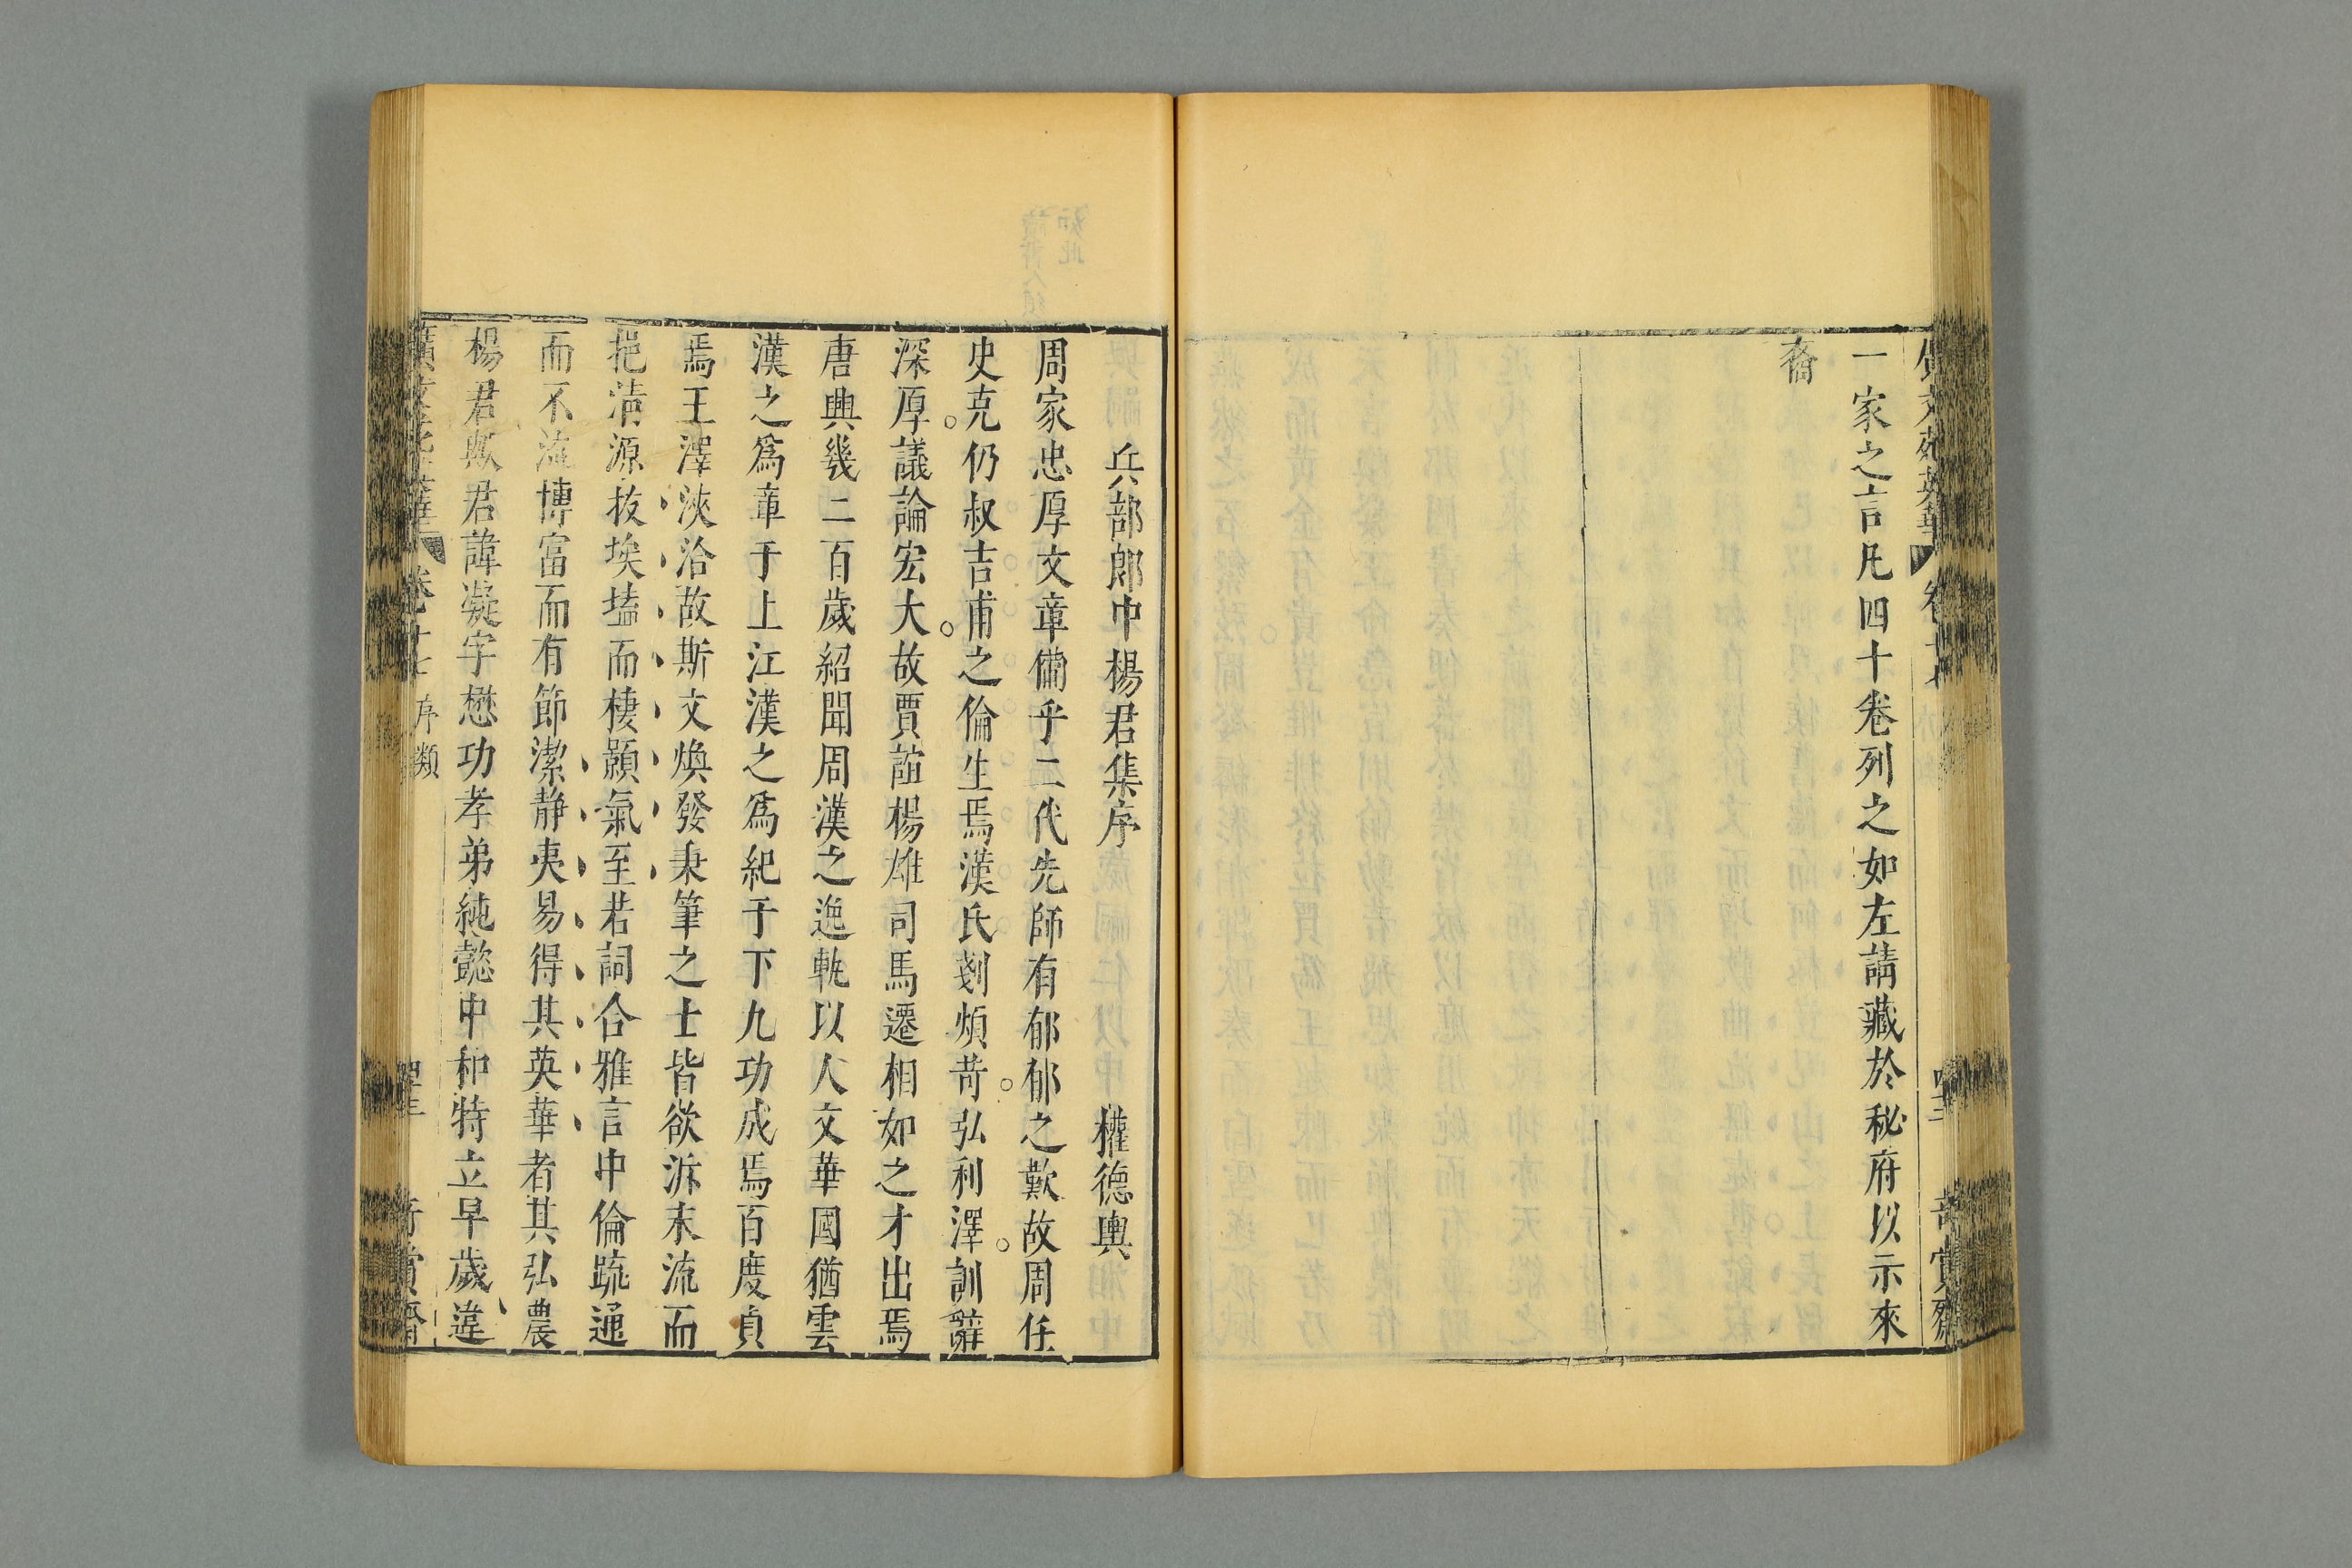 一家之言凡四十卷列之如左請藏於秘府以示來
裔
兵部郎中楊君集序 權德輿
周家忠厚文章備乎二代先師有郁郁之歎故周任
史克仍叔吉甫之倫生焉漢氏剗煩苛弘利澤訓辭
深厚議論宏大故賈誼楊雄司馬遷相如之才出焉
唐興幾二百歲紹聞周漢之逸軌以人文華國猶雲
漢之爲章于上江漢之爲紀于下九功成焉百度貞
焉王澤浹洽故斯文煥發秉筆之士皆欲泝末流而
挹清源抜埃壒而棲顥氣至若詞合雅言中倫疏通
而不流博富而有節潔静夷易得其英華者其弘農
楊君歟君諱凝字懋功孝弟純懿中和特立早歲違
序類